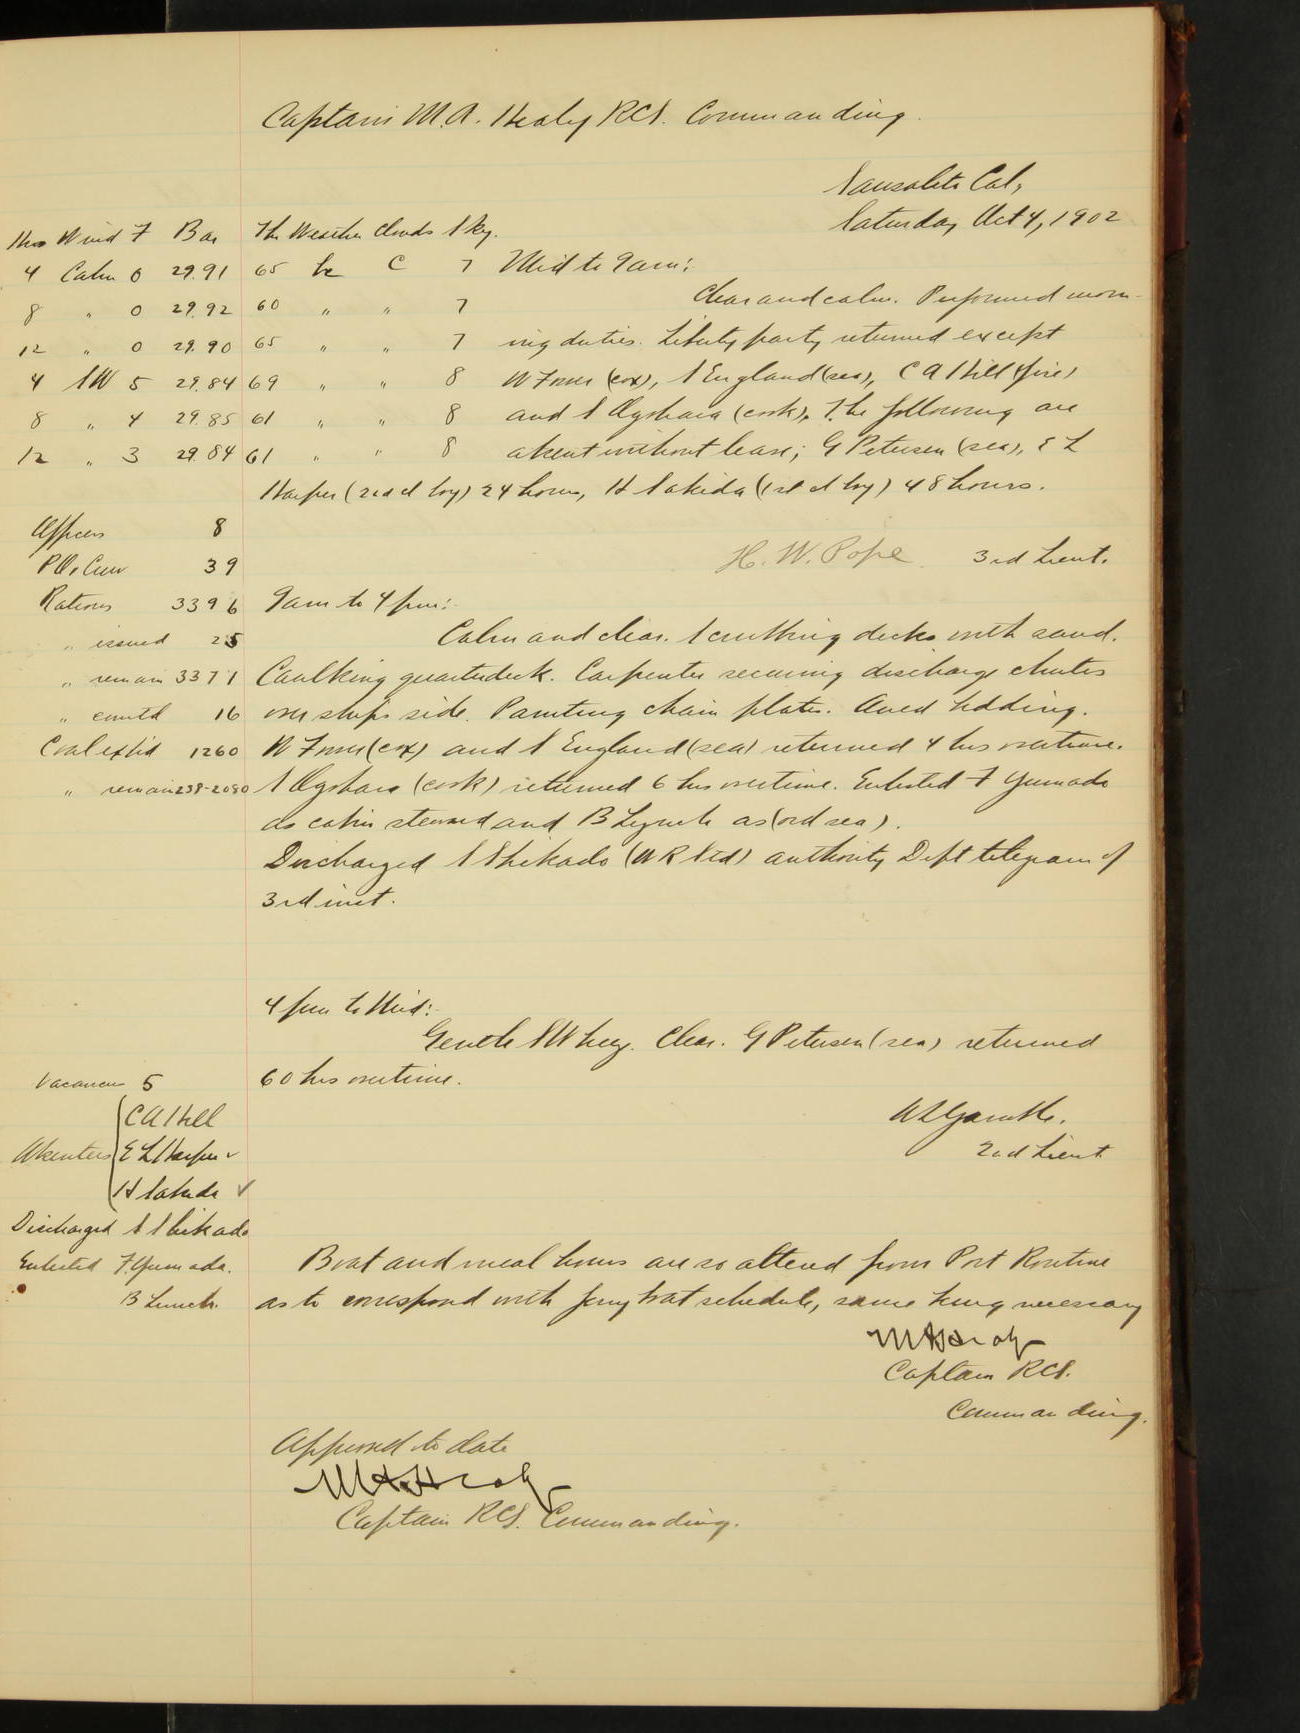 Captain M.A. Healy RCS. Commanding.
Sausalito Cal,
Saturday Oct 4, 1902
Hrs Wind F Bar Th Weather Clouds Sky.
4 Calm 0 29.91 65 bc C 7 Mid to 9am:
8 " 0 29.92 60 " " 7 Clear and calm. Performed morn-
12 " 0 29.90 65 " " 7 ing duties. Liberty party returned except
4 SW 5 29.84 69 " " 8 W (cox), S England (sea), C A Hill (fire)
8 " 4 29.85 61 " " 8 and S (cook), The following are
12 " 3 29.84 61 " " 8 absent without leave; G Petersen (sea), E L
Harper (2nd cl boy) 24 hours, H Sakida (1st cl boy) 48 hours.
Officers 8
H. W. Pope 3rd Lieut.
P.O. Crew 39
Rations 3396 9am to 4 pm:
" issued 25 Calm and clear. Scrubbing decks with sand.
" remain 3371 Caulking quarterdeck. Carpenter securing discharge chutes
" comtd 16 over ships side. Painting chain plates. Aired bedding.
Coal exp'd 1260 W (cox) and S England (sea) returned 4 hrs overtime.
" remain 238-2080 S (cook) returned 6 hrs overtime. Enlisted F Yumado
as cabin steward and B Lynch as (ord sea).
Discharged S Shikado (W R Std) authority Dept telegram of
3rd inst.
4 pm to Mid:
Gentle SW breeze. Clear. G Petersen (sea) returned
Vacancies 5 60 hrs overtime.
C A Hill
Absentees E L Harper ✓
2nd Lieut
H Sakida ✓
Discharged S Shikado
Enlisted F. Yumada. Boat and meal hours are so altered from Port Routine
B Lynch. as to correspond with ferry boat schedule, same being necessary
M A Healy
Captain RCS.
Commanding.
Approved to date
M. A. Healy
Captain RCS. Commanding.